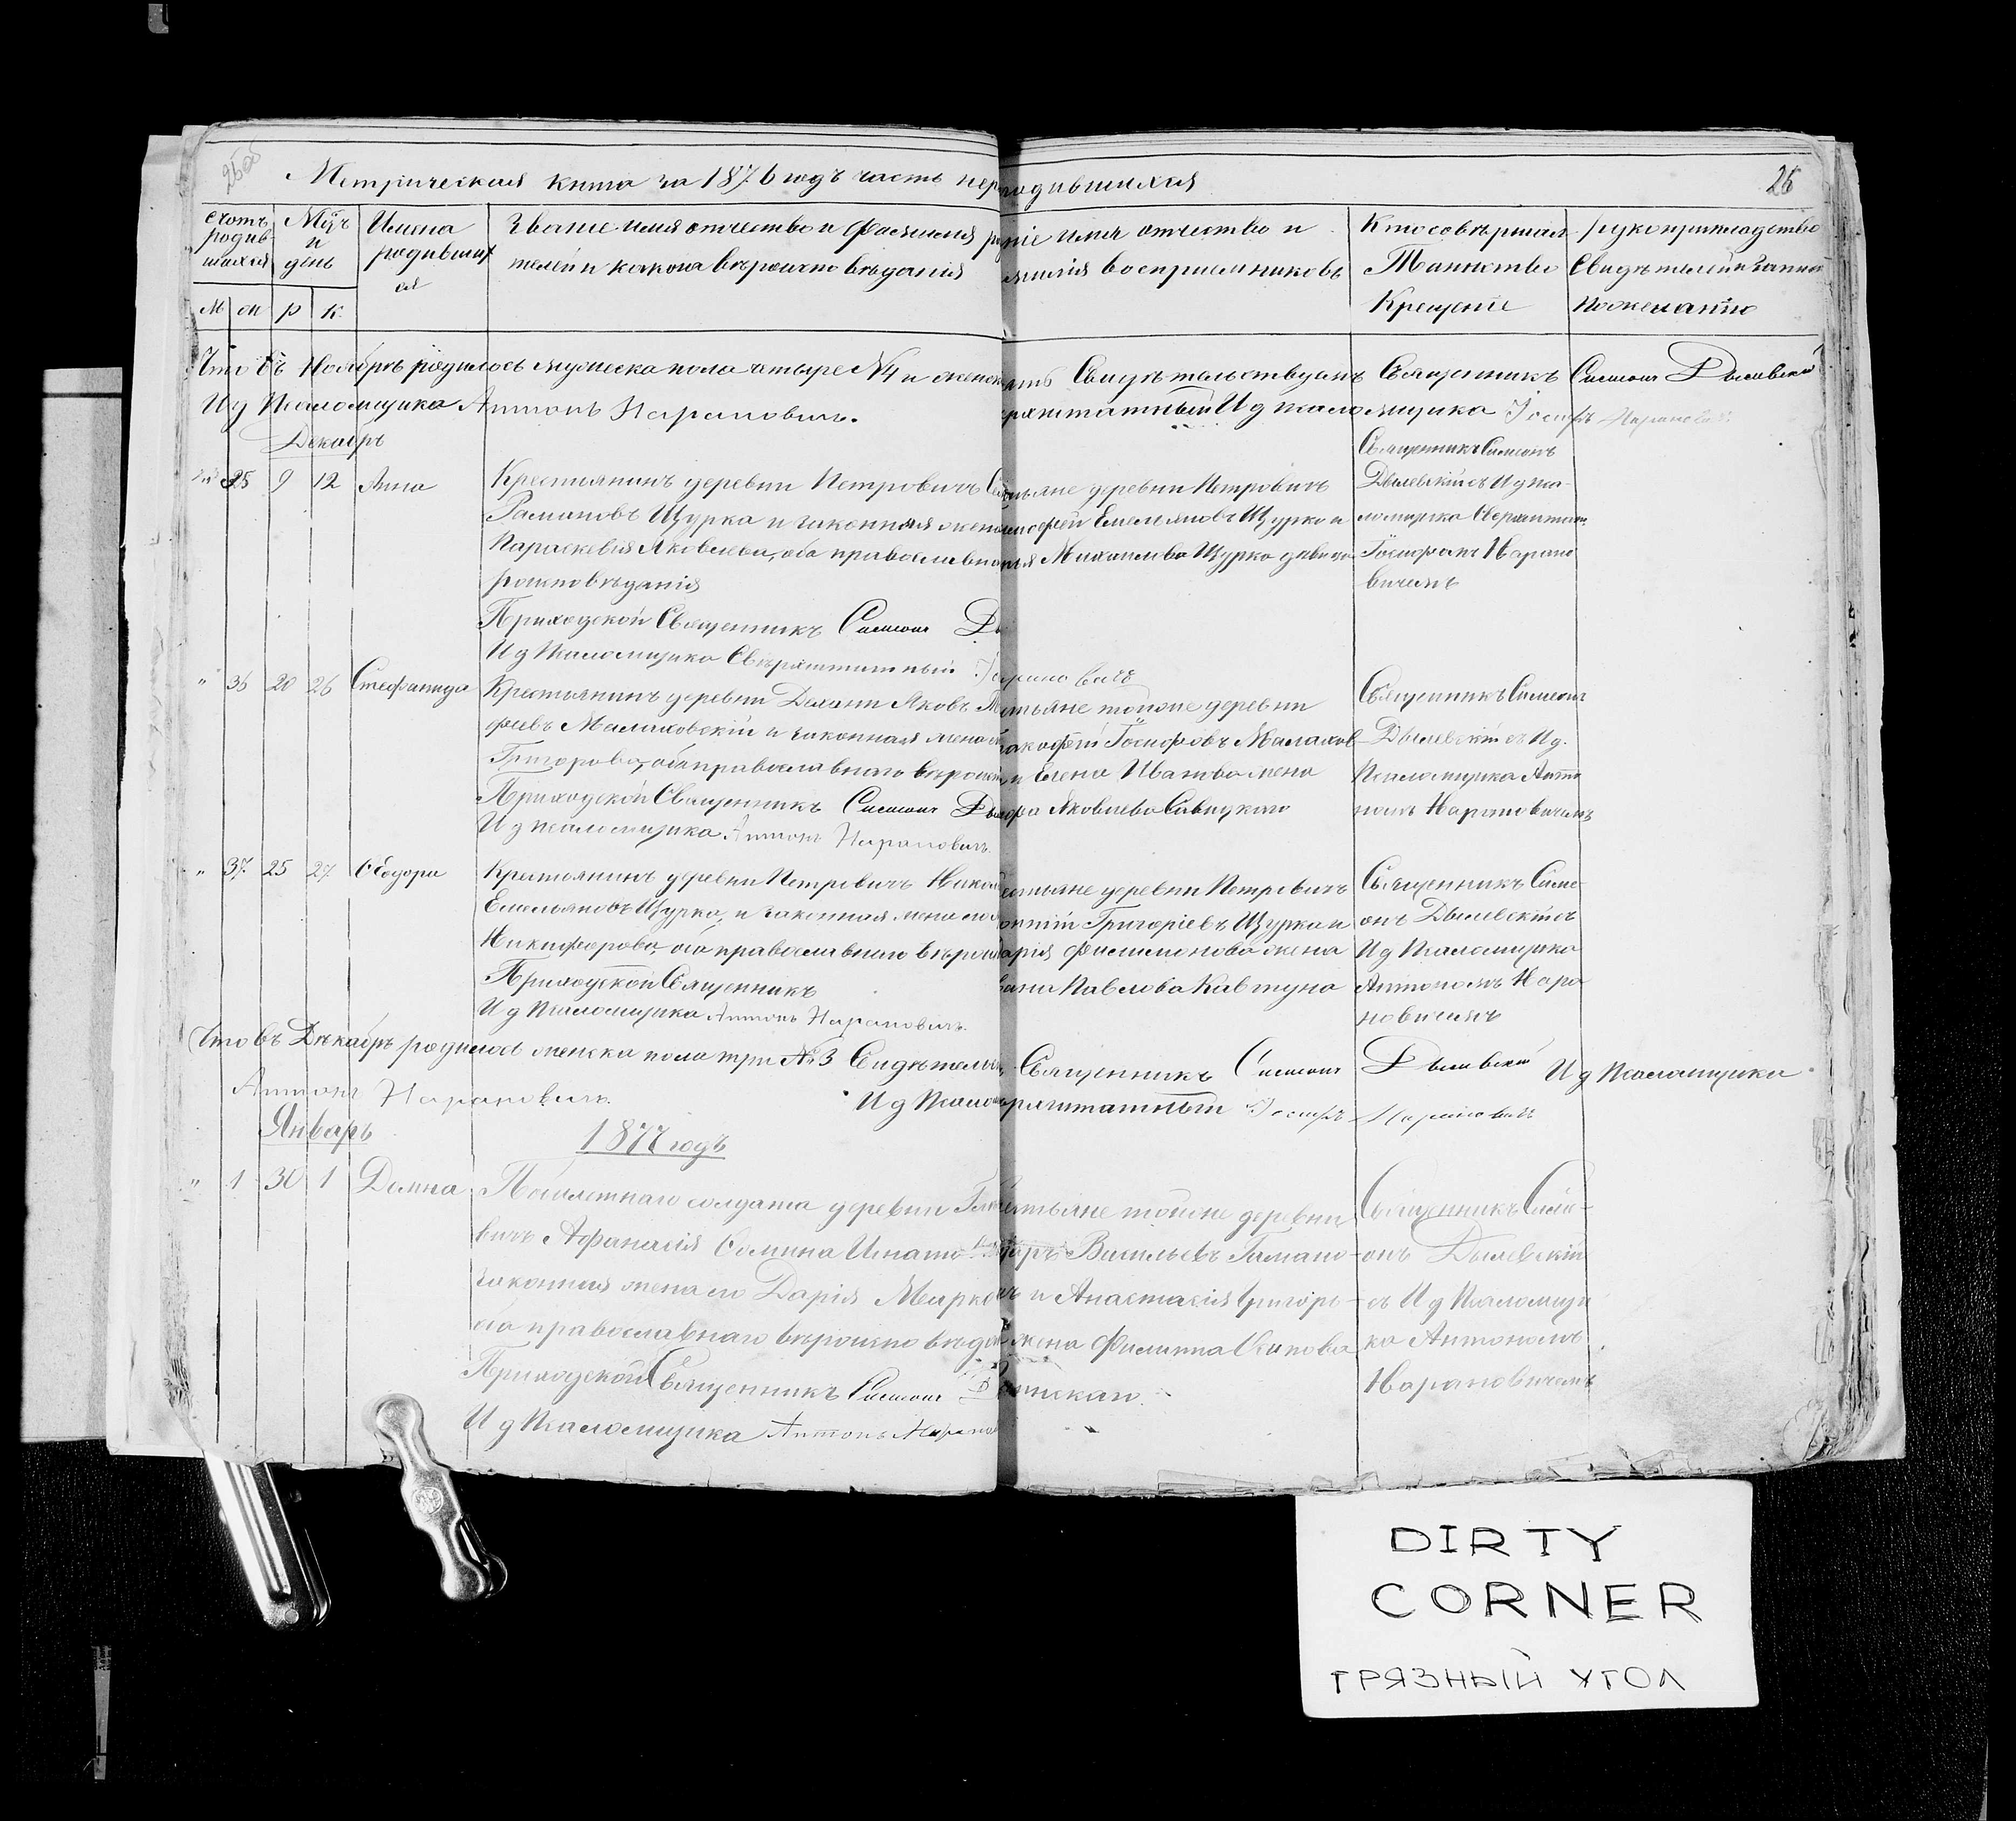 Метрическая книга за 1876 годъ часть пер
родившихся
26
счотъ родив- шихся
Мцъ и день
Имена родивших ся
Званіе имя отчество и фамилія ро
телей и какога вѣроисповѣданія
ніе имя отчество и
милія воспріемниковъ
Кто совѣршал
Таинство
Крещеніе
рукоприкладство
Свидѣтелей
по желанію
М ж р к.
Что въ Ноябрѣ родилось мужеска пола четыре №4 и женск
Свидѣтельствуемъ Священникъ Симеон Дылевскій
И д Псаломщика Антонъ Нарановичъ.
И д псаломщика Іосифъ Нарановичъ
Декабрь
35 9 12 Анна
Крестьянинъ деревни Петровичъ
Рамановъ Щурка и законная жена
Параскевія Яковлева, оба православна
роисповѣданія
Приходской Священникъ Симеон
И д Псаломщика Сверхштатный
тьяне деревни Петровичъ
офей Емельяновъ Щурко и
Михаилова Щурко девица
Священникъ Симеонъ
Дылевскій съ И д пса-
ломщика Сверхштат.
Іосифомъ Нарано
вичемъ
" 36 20 26 Стефанида
Крестьянинъ деревни Яковъ
феевъ Малаховскій и законная жена
Григорова, оба православнаго вѣроисп
Приходской Священникъ Симеон Ды
И д псаломщика Антонъ Нарановичъ.
тьяне тойже деревни
Іосифовъ Малахов-
и Елена Иванова жена
Яковлева Савицкаго
Священникъ Симеон
Дылевскій съ И д.
Псаломщика Анто
номъ Нарановичемъ
" 37 25 27 Ѳеодора
Крестьянинъ деревни Петровичъ
Емельяновъ Щурко, и законная жена
Никифорова, оба православнаго вѣроисп
Приходской Священникъ
И д Псаломщика Антонъ Нарановичъ.
стьяне деревни Петровичъ
Григоріевъ Щурко и
арія Филимонова жена
Павлова Кавтуна
Священникъ Симе-
онъ Дылевскій съ
И д Псаломщика
Антономъ Нара
новичемъ
Что въ Декабрѣ родилось женска пола три №3 Свидѣтельст
Священникъ Симеон Дылевскій И д Псаломщика
Антонъ Нарановичъ.
И д Псалом
рхштатный Іосифъ Нарановичъ
Январь
1877 годъ
" 1 30 1 Домна
деревни
вичъ Афанасія Сомина
законная жена его Дарія Марко
оба православнаго вѣроисповѣдан
Приходской Священникъ Симеон Д
И д Псаломщика Антонъ Наранов
тьяне тойже деревни
Васильевъ
и Анастасія Григорь-
жена Филиппа Осипова
Священникъ Симе-
онъ Дылевскій
съ И д Псаломщи
ка Антономъ
Нарановичемъ
DIRTY
CORNER
ГРЯЗНЫЙ УГОЛ